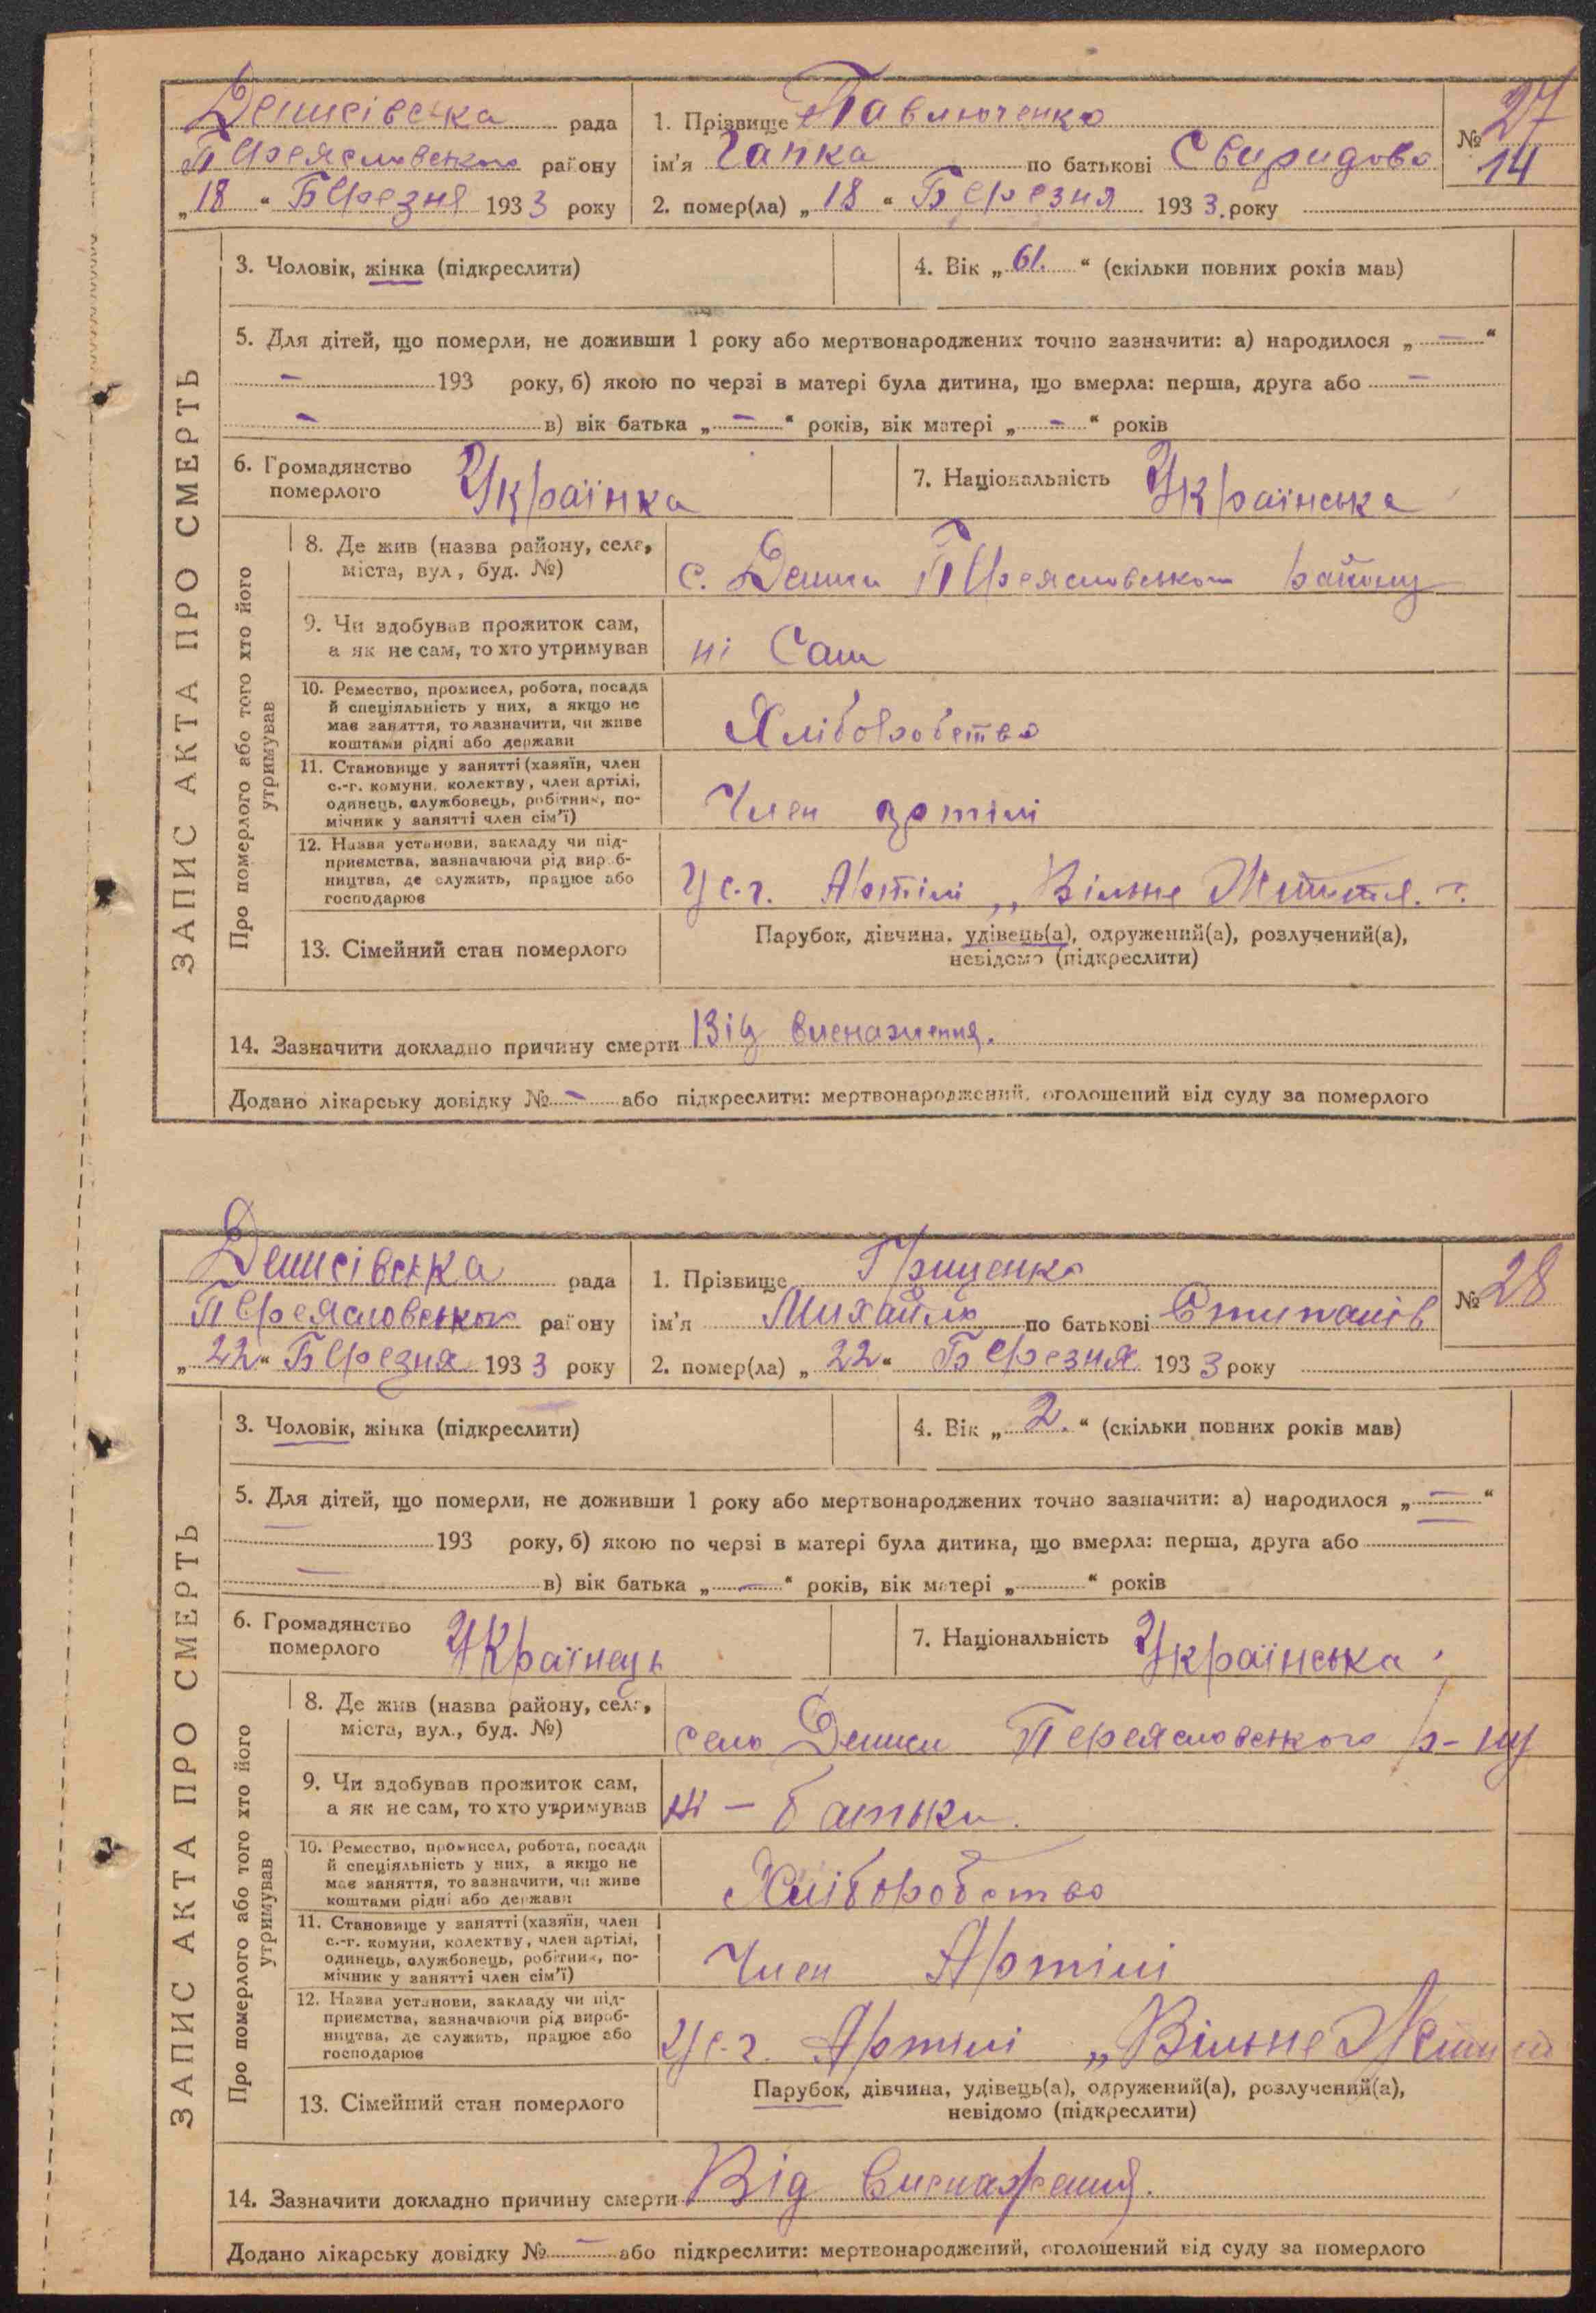 Денисівська рада
Переясловського району
„18“ Березня 1933 року
1. Прізвище Павлюченко
ім'я Гапка по батькові Свиридова
2. помер(ла) „18“ Березня 1933. року
№ 27
14
ЗАПИС АКТА ПРО СМЕРТЬ
3. Чоловік, жінка (підкреслити)
4. Вік „61.“ (скільки повних років мав)
5. Для дітей, що померли, не доживши 1 року або мертвонароджених точно зазначити: а) народилося „–“
– 193 року, б) якою по черзі в матері була дитина, що вмерла: перша, друга або –
– в) вік батька „–“ років, вік матері „–“ років
6. Громадянство
померлого
Українка
7. Національність Українська
Про померлого або того хто його
утримував
8. Де жив (назва району, села,
міста, вул., буд. №)
с. Дениси Переясловського району
9. Чи здобував прожиток сам,
а як не сам, то хто утримував
ні Сам
10. Ремество, промисел, робота, посада
й спеціяльність у них, а якщо не
має заняття, то зазначити, чи живе
коштами рідні або держави
Хліборобство
11. Становище у занятті (хазяїн, член
с.-г. комуни, колективу, член артілі,
одинець, службовець, робітник, по-
мічник у занятті член сім'ї)
Член артілі
12. Назва установи, закладу чи під-
приємства, зазначаючи рід вироб-
ництва, де служить, працює або
господарює
У с.г. Артілі „Вільне Життя."
13. Сімейний стан померлого
Парубок, дівчина, удівець(а), одружений(а), розлучений(а),
невідомо (підкреслити)
14. Зазначити докладно причину смерти Від виснаження.
Додано лікарську довідку № – або підкреслити: мертвонароджений, оголошений від суду за померлого
Денисівська рада
Переясловського району
„22“ Березня 1933 року
1. Прізвище Гриценко
ім'я Михайло по батькові Степанів
2. помер(ла) „22“ Березня 1933 року
№ 28
ЗАПИС АКТА ПРО СМЕРТЬ
3. Чоловік, жінка (підкреслити)
4. Вік „2.“ (скільки повних років мав)
5. Для дітей, що померли, не доживши 1 року або мертвонароджених точно зазначити: а) народилося „–“
– 193 року, б) якою по черзі в матері була дитина, що вмерла: перша, друга або
– в) вік батька „–“ років, вік матері „“ років
6. Громадянство
померлого
Українець
7. Національність Українська
Про померлого або того хто його
утримував
8. Де жив (назва району, села,
міста, вул., буд. №)
село Дениси Переясловського р-ну
9. Чи здобував прожиток сам,
а як не сам, то хто утримував
ні – батьки.
10. Ремество, промисел, робота, посада
й спеціяльність у них, а якщо не
має заняття, то зазначити, чи живе
коштами рідні або держави
Хліборобство
11. Становище у занятті (хазяїн, член
с.-г. комуни, колективу, член артілі,
одинець, службовець, робітник, по-
мічник у занятті член сім'ї)
Член Артілі
12. Назва установи, закладу чи під-
приємства, зазначаючи рід вироб-
ництва, де служить, працює або
господарює
У с.г. Артілі „Вільне Життя
13. Сімейний стан померлого
Парубок, дівчина, удівець(а), одружений(а), розлучений(а),
невідомо (підкреслити)
14. Зазначити докладно причину смерти Від виснаження.
Додано лікарську довідку № – або підкреслити: мертвонароджений, оголошений від суду за померлого